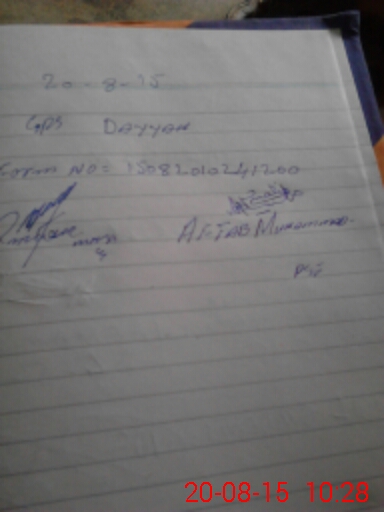 20-8-15
GPS Dayyan
Form NO: 15082010241200
AFTAB Muhammad
PST
20-08-15 10:28